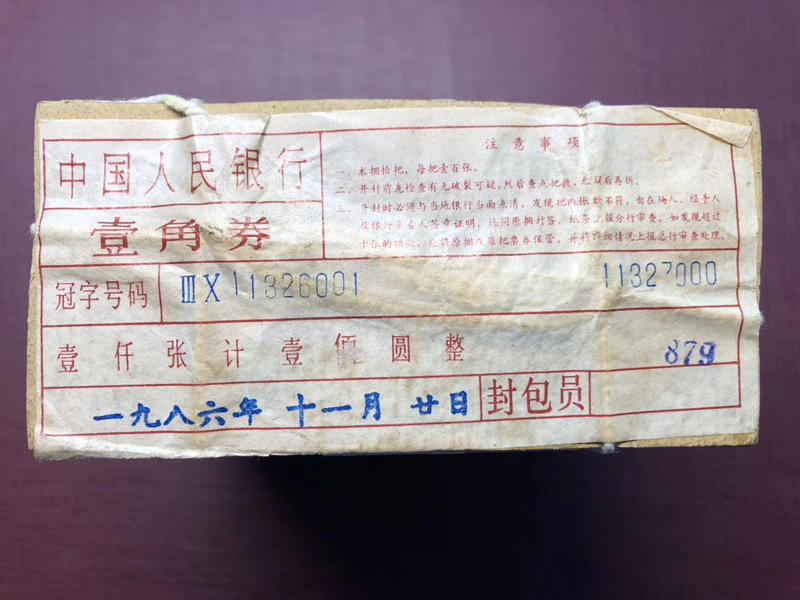 中国人民银行
壹角券
注意事项
一、本捆拾把，每把壹百张。
二、开封前先检查有无破裂可疑，然后查点把数，无疑后再拆。
三、开封时必须与当地银行当面点清，发现把内张数不符，由在场人、经手人
及银行负责人签章证明，连同原捆封签、纸条上报分行审查。如发现超过
十张的情况，应将原捆或原把票券保管，并将详细情况上报总行审查处理。
冠字号码 ⅢX 11326001 11327000
壹仟张计壹佰圆整 879
一九八六年 十一月 廿日 封包员